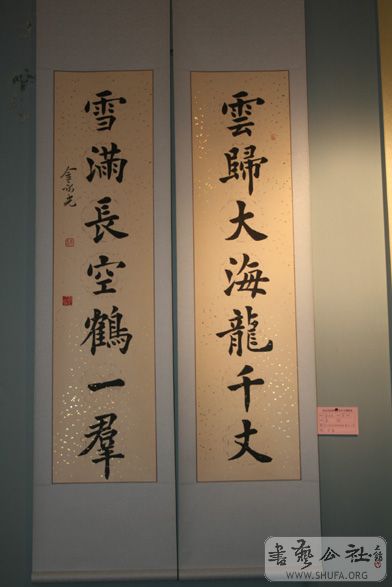 雲歸大海龍千丈
雪滿長空鶴一羣
書藝公社
WWW.SHUFA.ORG